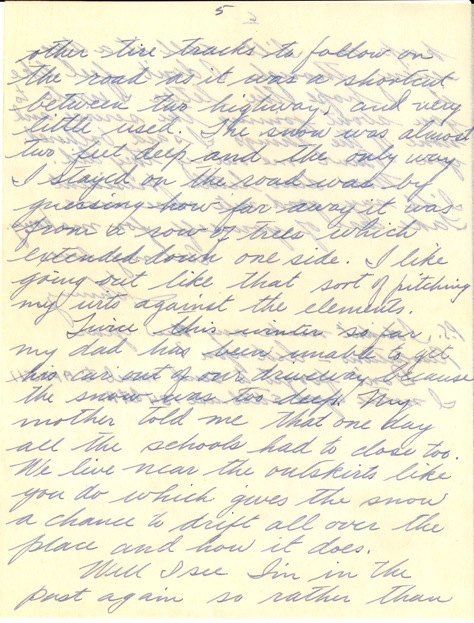 5
other tire tracks to follow on
the road as it was a shortcut
between two highway, and very
little used. The snow was almost
two feet deep and the only way
I stayed on the road was by
guessing how far away it was
from a row of trees which
extended down one side. I like
going out like that sort of pitching
my wits against the elements.
Twice this winter so far
my dad has been unable to get
his car out of our driveway because
the snow was too deep. My
mother told me that one day
all the schools had to close too.
We live near the outskirts like
you do which gives the snow
a chance to drift all over the
place and how it does.
Well I see I'm in the
past again so rather than